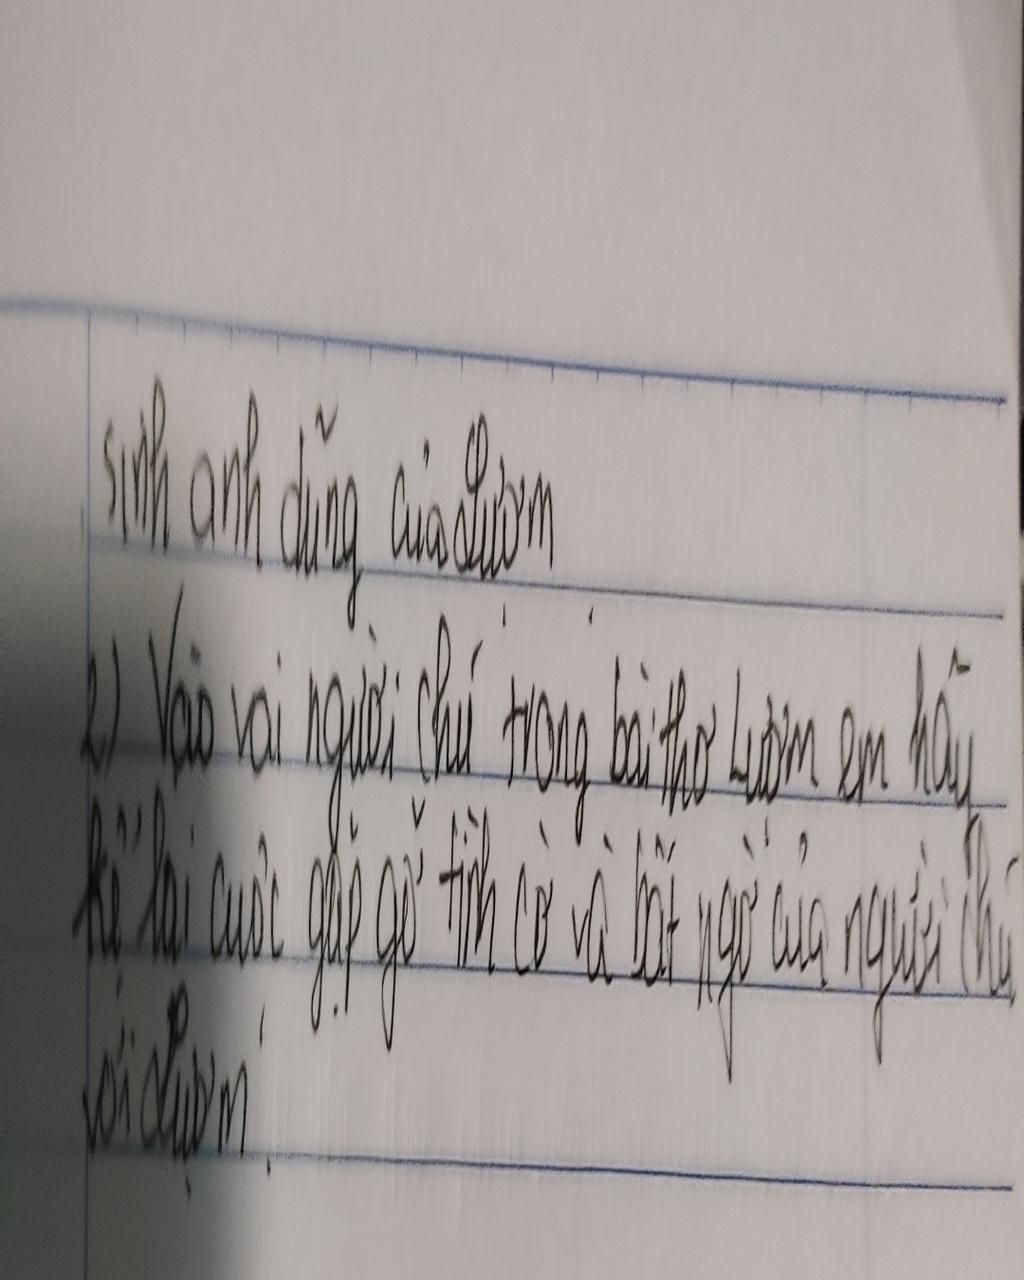 sinh anh dũng của Lượm
2) Vào vai người chú trong bài thơ Lượm em hãy
kể lại cuộc gặp gỡ tình cờ và bất ngờ của người chú
với Lượm.